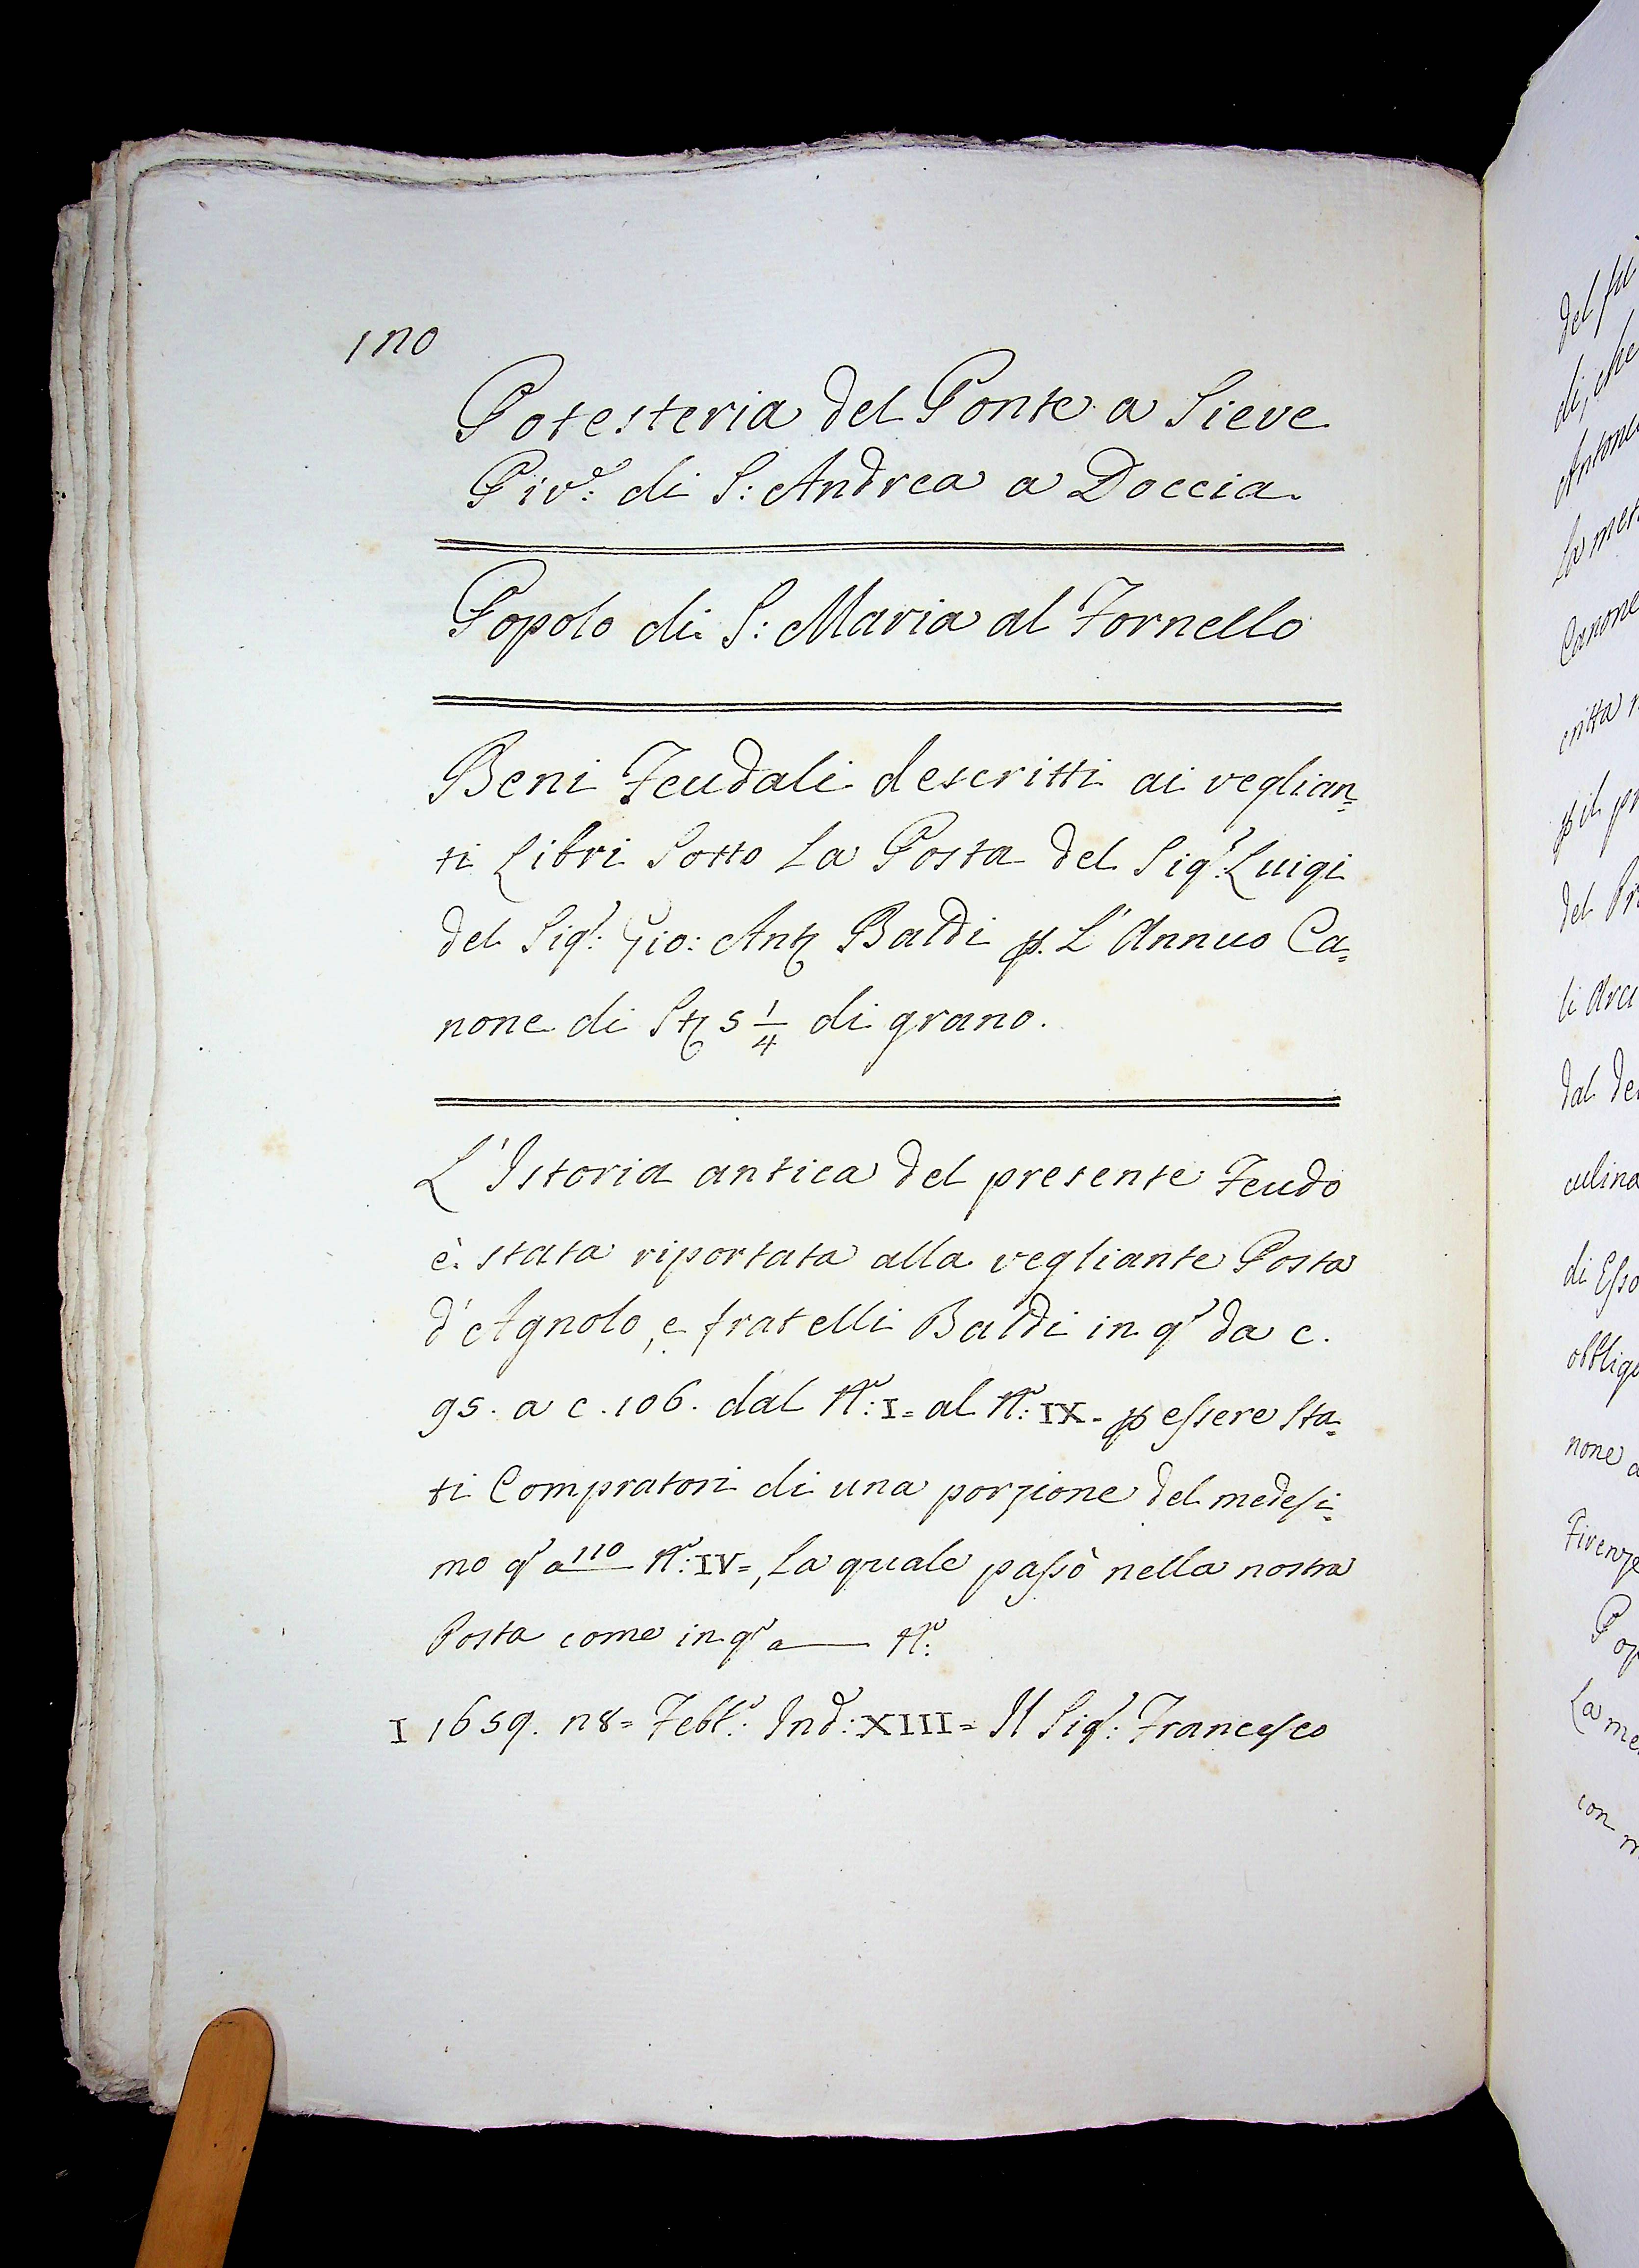 120
Potesteria del Ponte a Sieve
Piv.e: di S: Andrea a Doccia.
Popolo di S: Maria al Fornello
Beni Feudali descritti ai veglian=
ti Libri Sotto La Posta del Sig.r: Luigi
del Sig.r: Gio: Ant.o Baldi p. L'Annuo Ca=
none di St.a 5 1/4 di grano.
L'Istoria antica del presente Feudo
è stata riportata alla vegliante Posta
d'Agnolo, e fratelli Baldi in q.o da c.
95. a c. 106. dal N.o: I= al N.o: IX. p essere Sta=
ti Compratori di una porzione del medesi=
mo q.o a 110 N.o: IV=, La quale passò nella nostra
Posta come in q.o a —— N.o:
I 1659. 28= Febb.o: Ind: XIII= Il Sig.r: Francesco
del
di, che
Canone
p il
del
dal
di Esso
none
Firenze
con